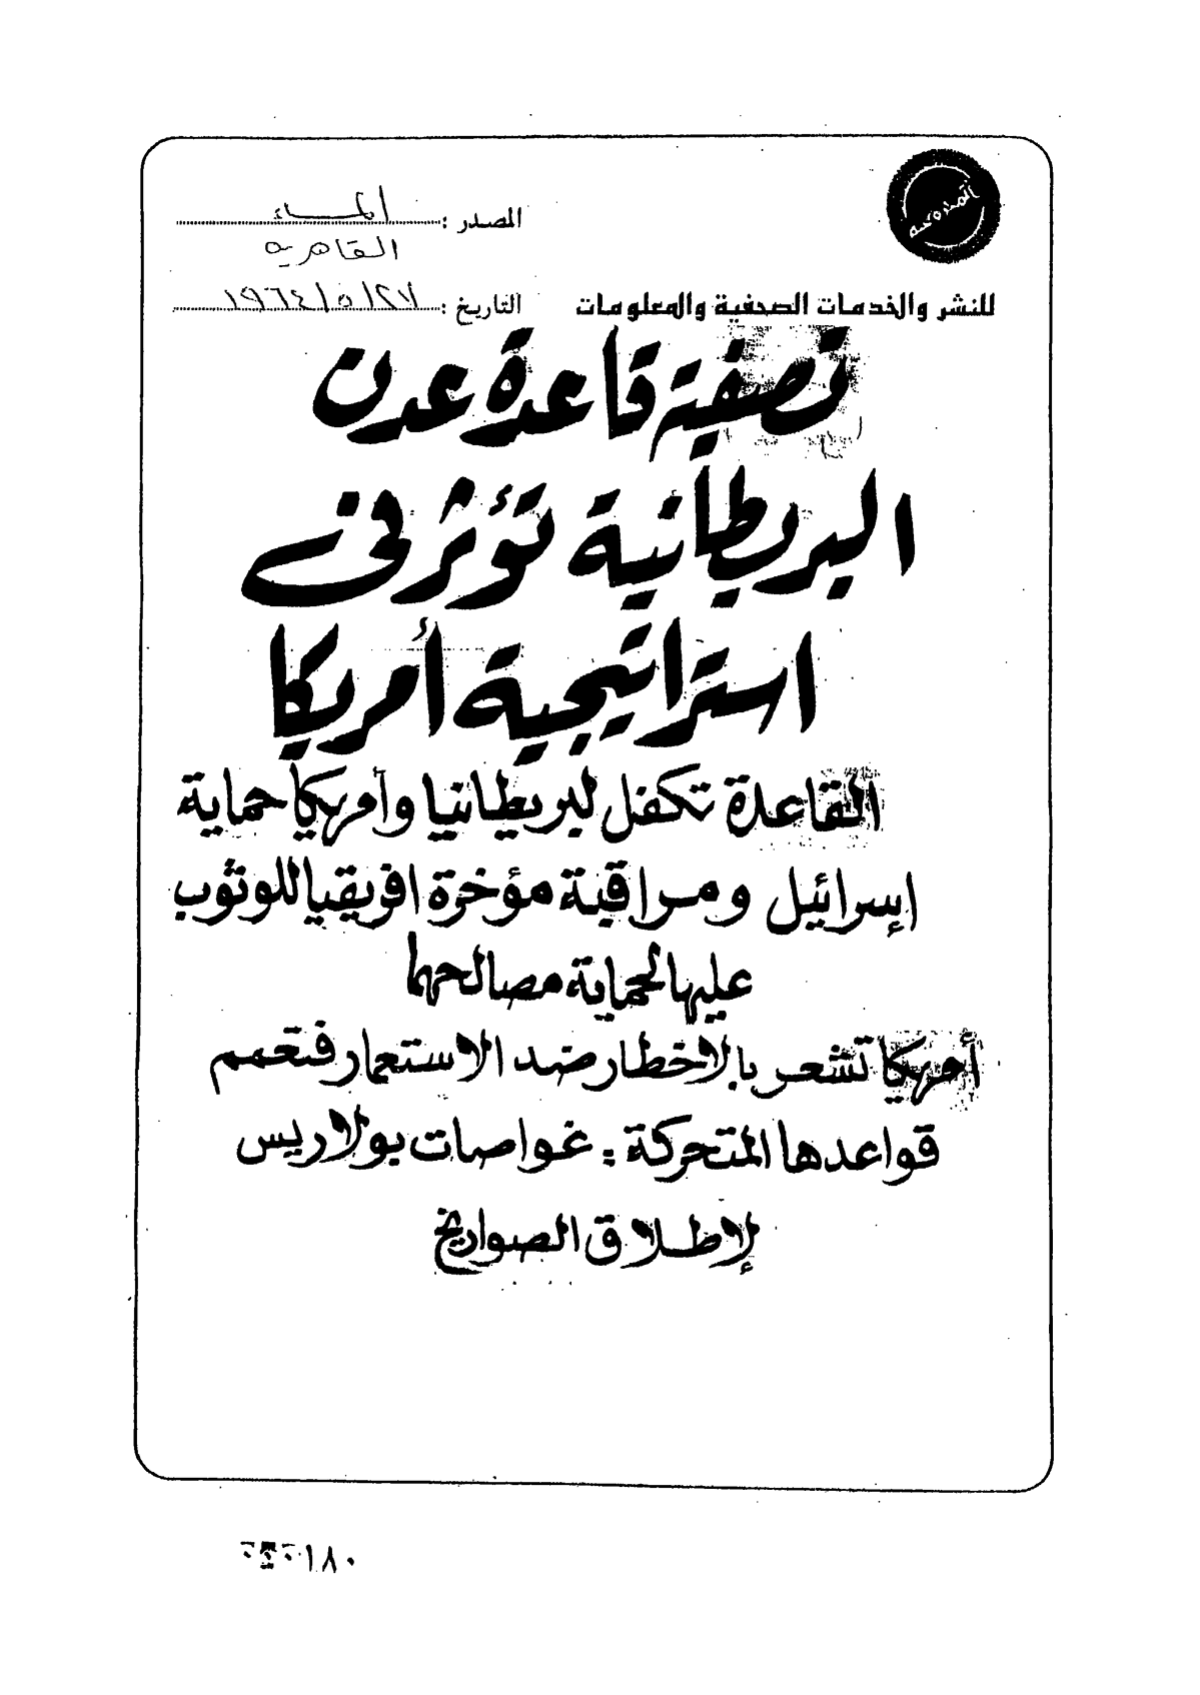 المصدر : المساء
القاهرية
للنشر والخدمات الصحفية والمعلومات
التاريخ : ٢٧ / ٥ / ١٩٦٤
تصفية قاعدة عدن
البريطانية تؤثر في
استراتيجية أمريكا
القاعدة تكفل لبريطانيا وأمريكا حماية
إسرائيل ومراقبة مؤخرة افريقيا للوثوب
عليها لحماية مصالحهما
أمريكا تشعر بالاخطار ضد الاستعمار فتعمم
قواعدها المتحركة : غواصات بولاريس
لإطلاق الصواريخ
١٨٠